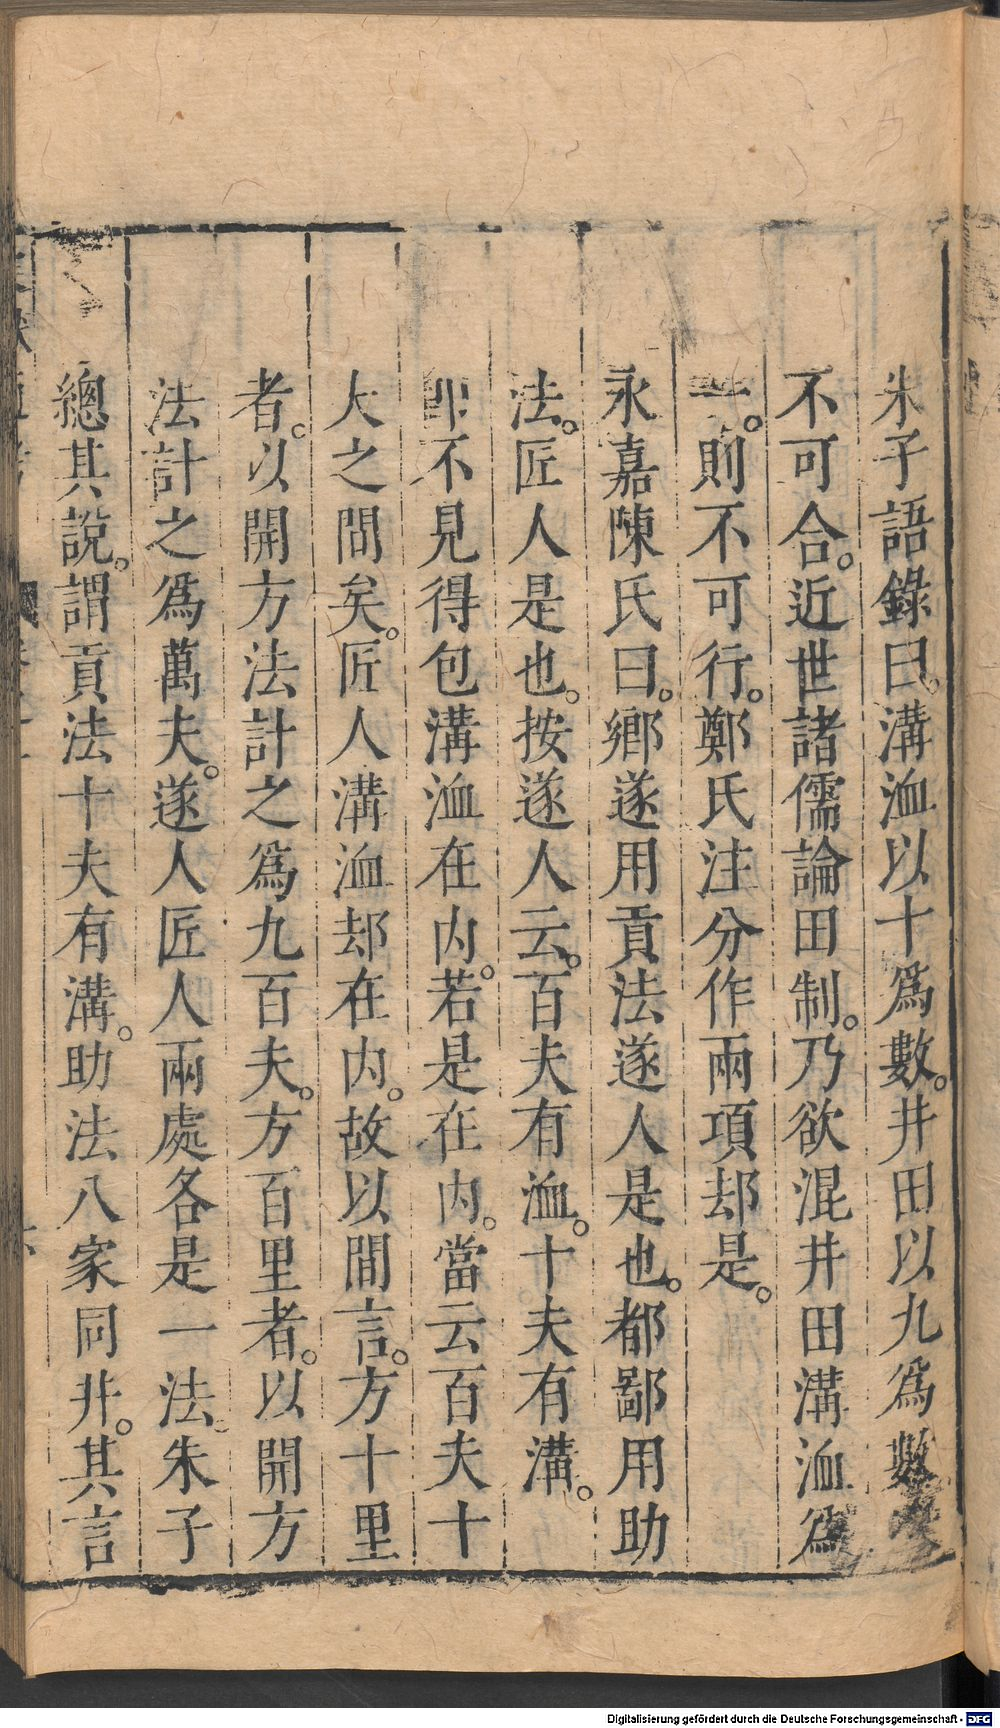 朱子語錄曰。溝洫以十爲數。井田以九爲數
不可合。近世諸儒論田制。乃欲混井田溝洫爲
一。則不可行。鄭氏注分作兩項却是。
永嘉陳氏曰。鄉遂用貢法遂人是也。都鄙用助
法。匠人是也。按遂人云。百夫有洫。十夫有溝。
卽不見得包溝洫在內。若是在內。當云百夫十
大之間矣。匠人溝洫却在內。故以間言。方十里
者。以開方法計之爲九百夫。方百里者。以開方
法計之爲萬夫。遂人匠人兩處各是一法。朱子
總其說。謂貢法十夫有溝。助法八家同井。其言
Digitalisierung gefördert durch die Deutsche Forschungsgemeinschaft - DFG